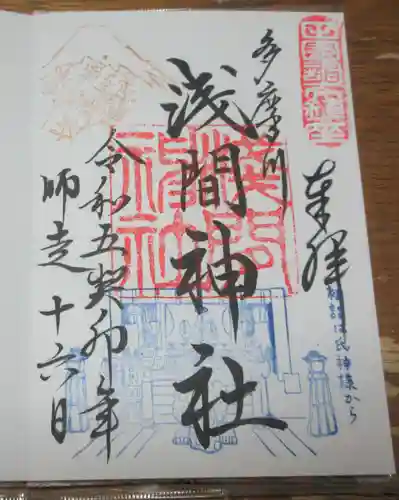 奉拝
初詣は氏神様から
多摩川
浅間神社
令和五癸卯年
師走十六日
浅間神社